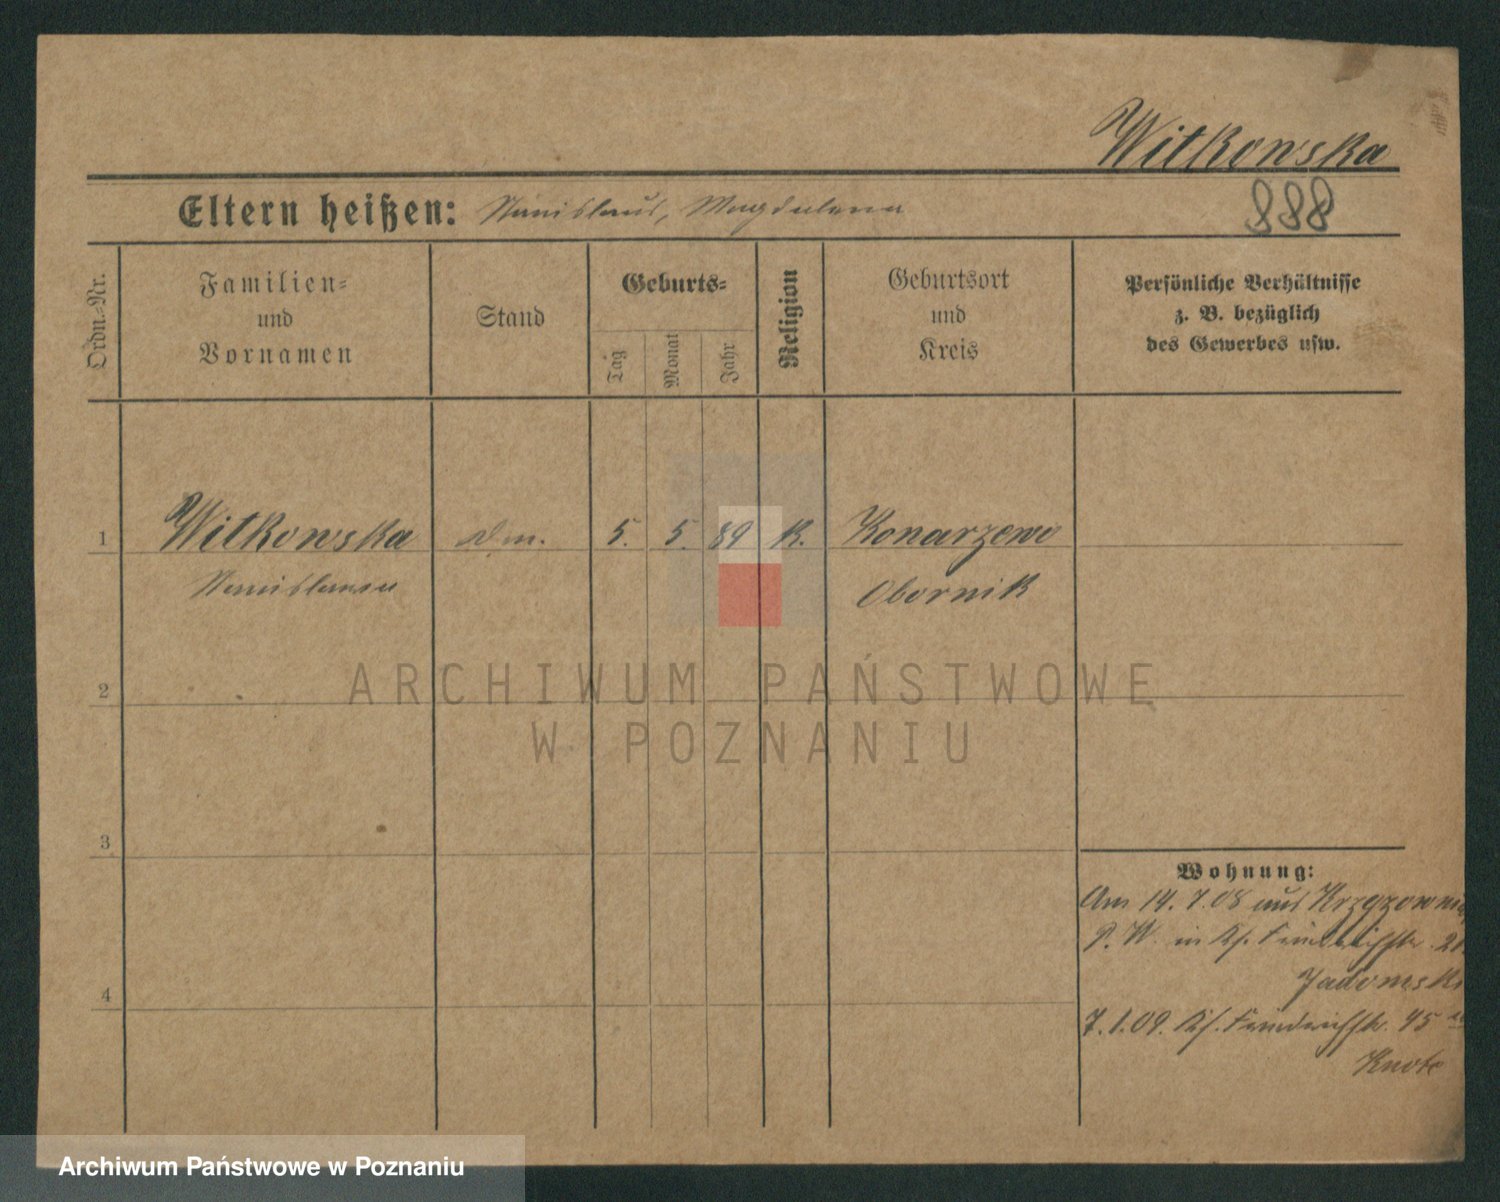 Witkowska
Eltern heißen: Stanislaus, Magdalena
888
Ordn.-Nr.
Familien-
und
Vornamen
Stand
Geburts-
Tag
Monat
Jahr
Religion
Geburtsort
und
Kreis
Persönliche Verhältnisse
z. B. bezüglich
des Gewerbes usw.
1 Witkowska 5. 5. 89 K. Konarzewo
Stanislawa Obornik
2
ARCHIWUM PAŃSTWOWE
W POZNANIU
3
Wohnung:
Am 14. 7. 08 aus
P. W. in Friedrichstr.
4
7. 1. 09. Friedrichstr. 45
Knote
Archiwum Państwowe w Poznaniu